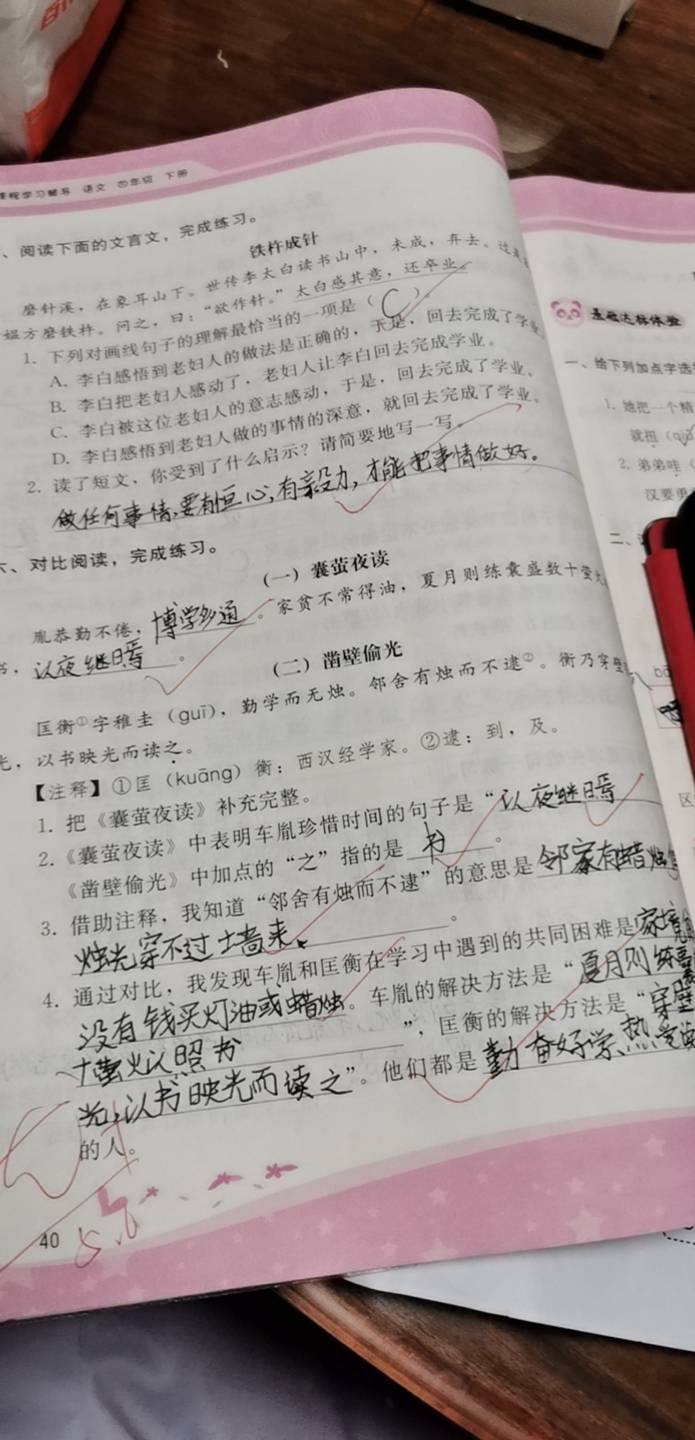 课程学习辅导 语文 四年级 下册
、阅读下面的文言文，完成练习。
铁杵成针
磨针溪，在象耳山下。世传李太白读书山中，未成，弃去。过是
媪方磨铁杵。问之，曰：“欲作针。”太白感其意，还卒业。
1. 下列对画线句子的理解最恰当的一项是（ C ）。
A. 李白感悟到老妇人的做法是正确的，于是，回去完成了学业。
B. 李白把老妇人感动了，老妇人让李白回去完成学业。
C. 李白被这位老妇人的意志感动，于是，回去完成了学业。
D. 李白感悟到老妇人做的事情的深意，就回去完成了学业。
2. 读了短文，你受到了什么启示？请简要地写一写。
做任何事情，要有恒心，有毅力，才能把事情做好。
六、对比阅读，完成练习。
（一）囊萤夜读
胤恭勤不倦，博学多通。家贫不常得油，夏月则练囊盛数十萤火
书，以夜继日焉。
（二）凿壁偷光
匡衡①字稚圭（guī），勤学而无烛。邻舍有烛而不逮②。衡乃穿壁
光，以书映光而读之。
【注释】①匡（kuāng）衡：西汉经学家。②逮：到，及。
1. 把《囊萤夜读》补充完整。
2.《囊萤夜读》中表明车胤珍惜时间的句子是“以夜继日焉
《凿壁偷光》中加点的“之”指的是 书 。
3. 借助注释，我知道“邻舍有烛而不逮”的意思是 邻家有蜡烛
烛光穿不过墙来。 。
4. 通过对比，我发现车胤和匡衡在学习中遇到的共同困难是家境
没有钱买灯油或蜡烛。车胤的解决方法是“夏月则练囊
十萤火以照书 ”，匡衡的解决方法是“穿壁
光，以书映光而读之”。他们都是勤奋好学、热爱
的人。
40
5.6
基础达标体验
一、给下列加点字选
1. 她把一个精
就扭（
2. 弟弟哇（
汉要勇
二、